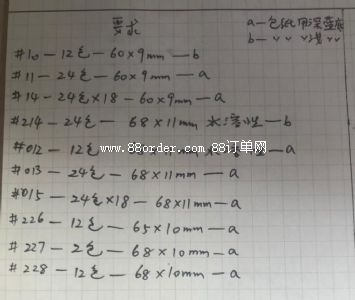 要求
a — 包纸用深蓝底
b — 〃 〃 〃浅 〃
#10 — 12色 — 60×9mm — b
#11 — 24色 — 60×9mm — a
#14 — 24色×18 — 60×9mm — a
#214 — 24色 — 68×11mm 水溶性 — b
#012 — 12色 性 — a
www.88order.com 88订单网
#013 — 24色 — 68×11mm — a
#015 — 24色×18 — 68×11mm — a
#226 — 12色 — 65×10mm — a
#227 — 2色 — 68×10mm — a
#228 — 12色 — 68×10mm — a